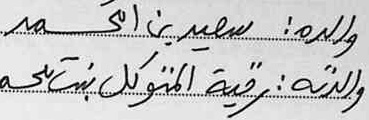 والده: سعيد بن امحمد
والدته: رقية المتوكل بنت